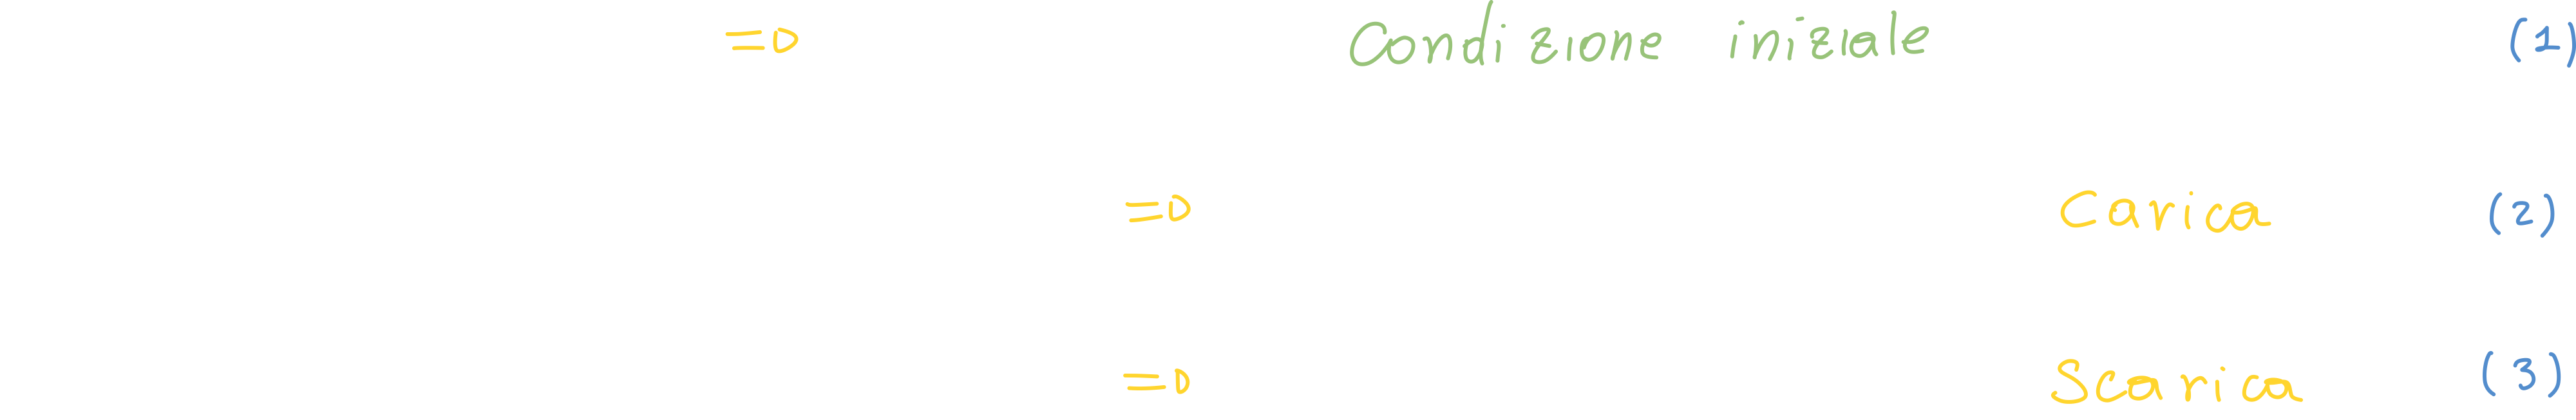 =D Condizione iniziale (1)
=D Carica (2)
=D Scarica (3)